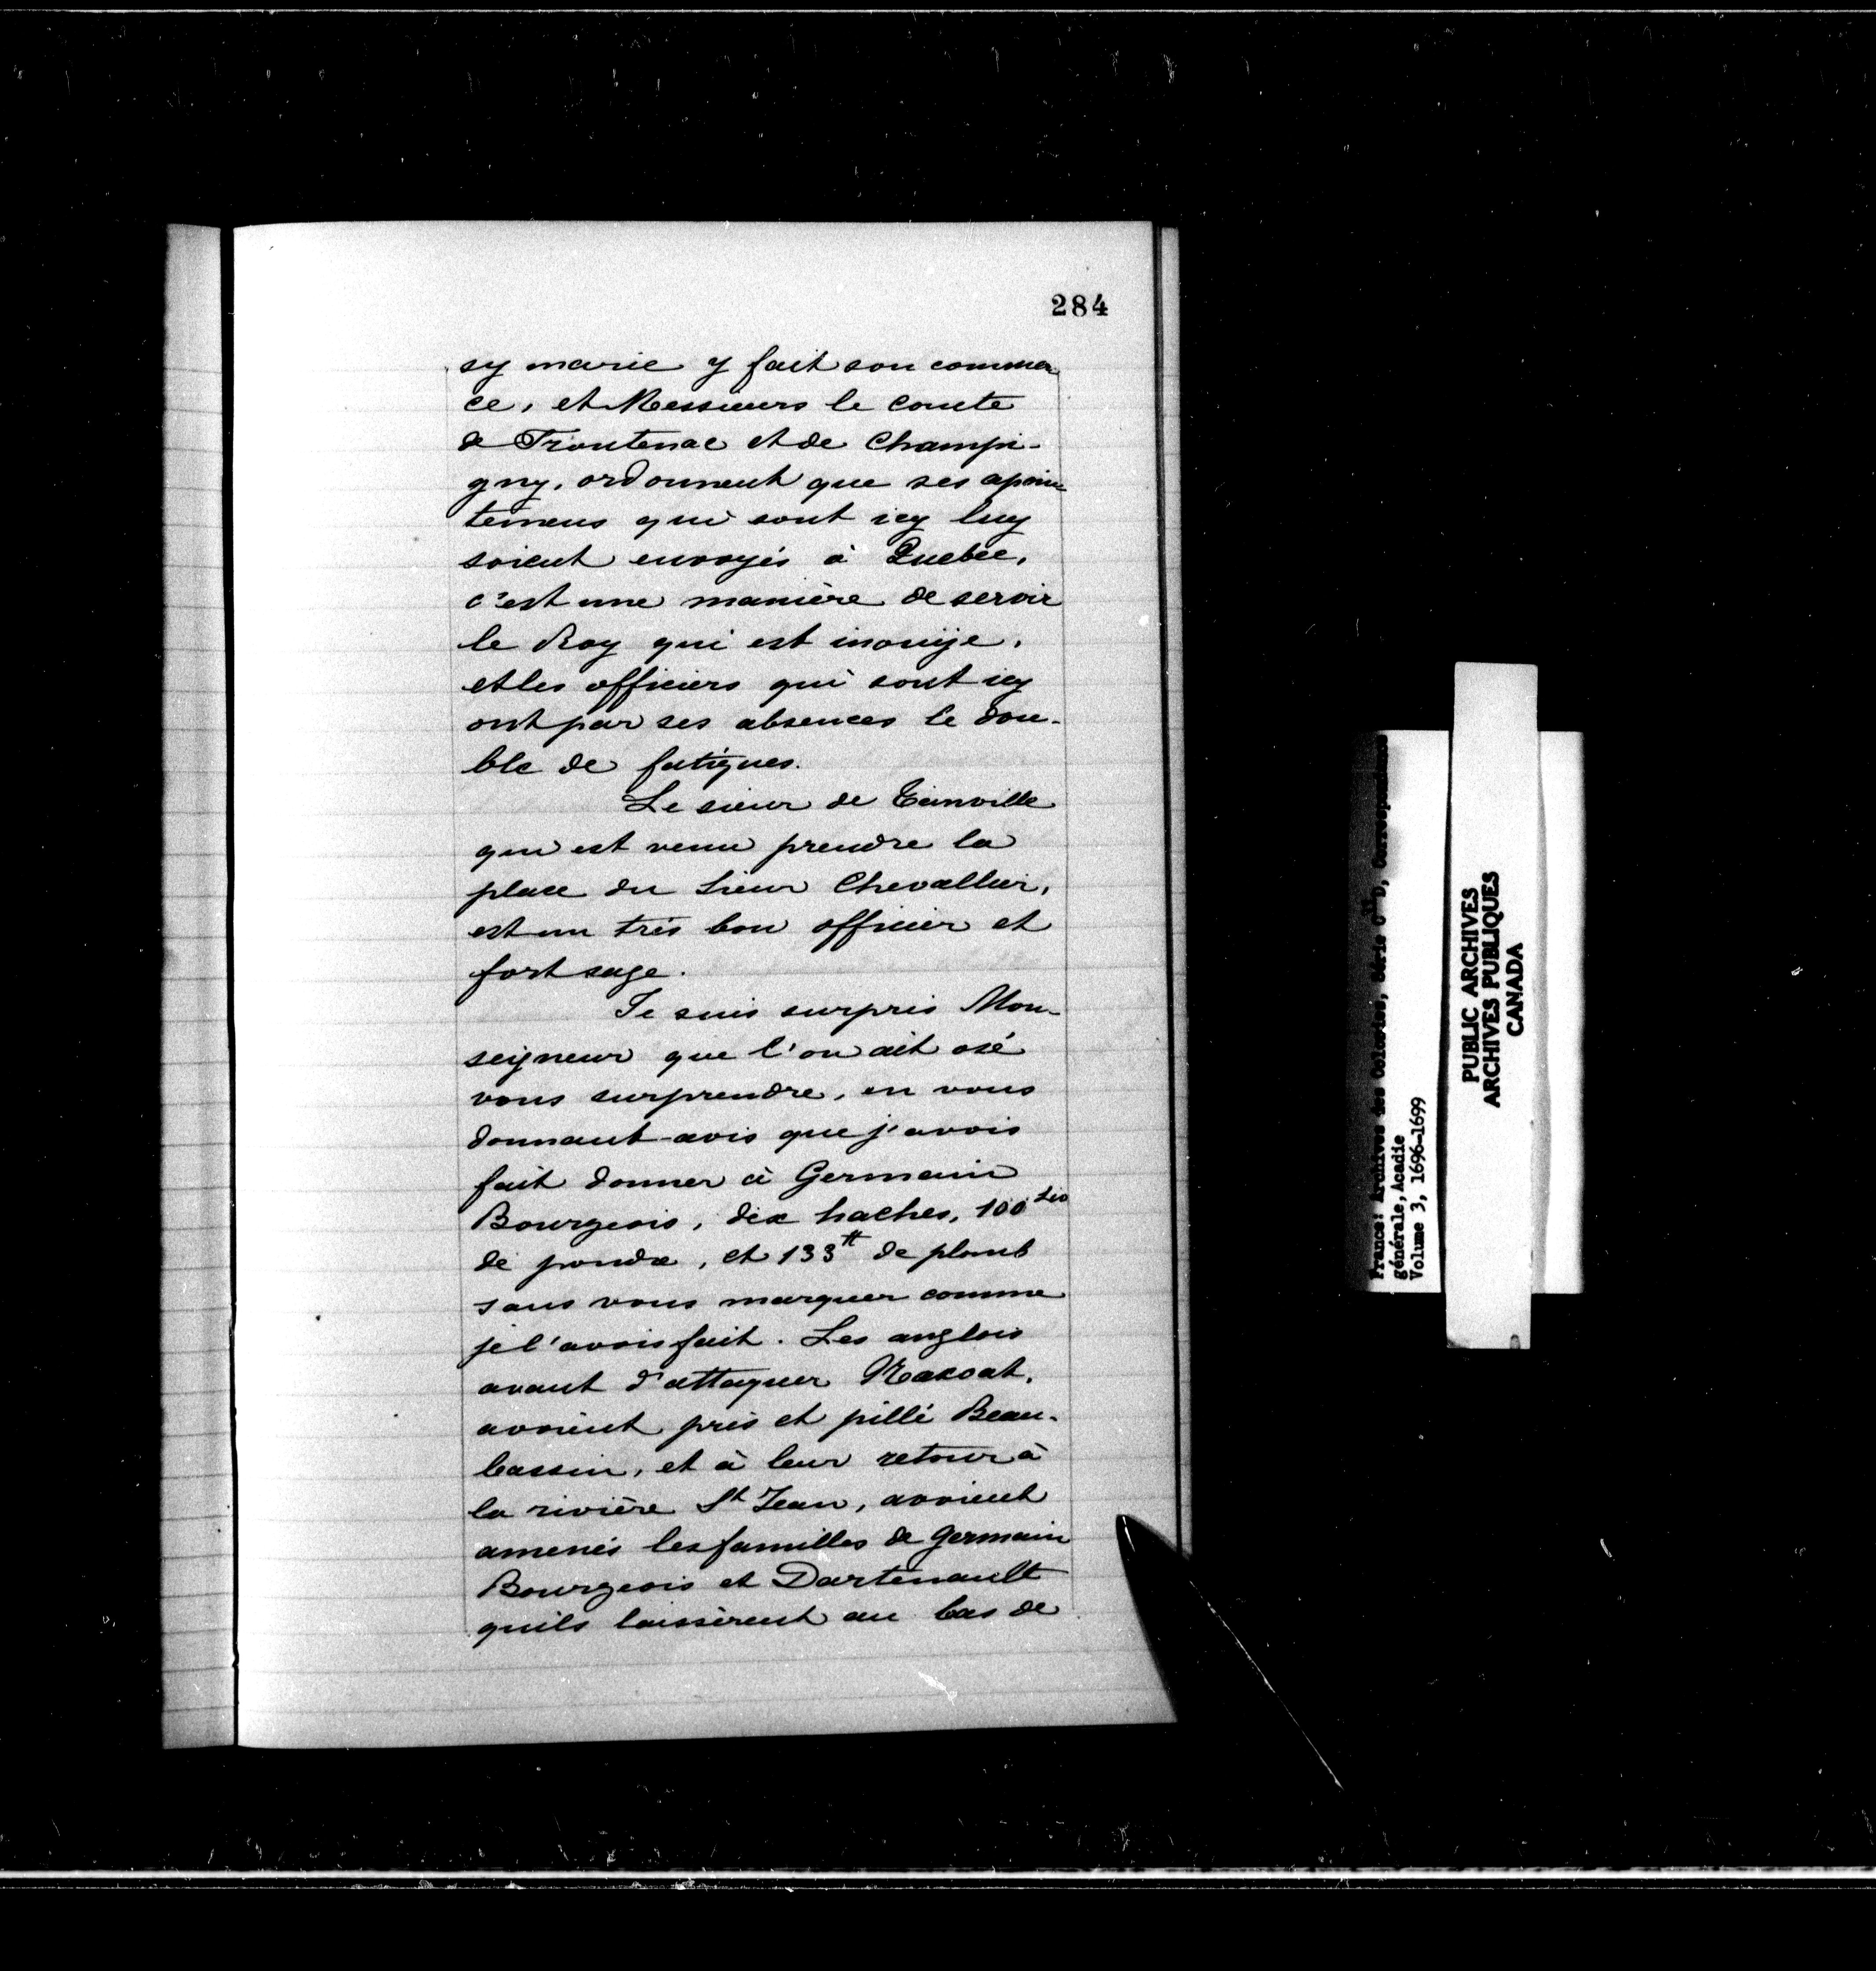 284
sy marie y fait son commer
ce, et Messieurs le comte
de Frontenac et de Champi-
gny, ordonnent que ses apoin-
temens qui sont icy luy
soient envoyés à Quebec,
c'est une manière de servir
le Roy qui est inouije,
et les officiers qui sont icy
ont par ses absences le dou-
ble de fatigues.
Le sieur de
qui est venu prendre la
place du Sieur Chevallier,
est un très bon officier et
fort sage.
Je suis surpris Mon-
seigneur que l'on ait osé
vous surprendre, en vous
donnant avis que j'avois
fait donner à Germain
Bourgeois, dix haches, 100
de poudre, et 133 tt de plomb
sans vous marquer comme
je l'avois fait. Les anglois
avant d'attaquer Naxoat,
avoient pris et pillé Beau-
bassin, et à leur retour à
la rivière St Jean, avoient
amenés les familles de Germain
Bourgeois et Dartenault
quils laissèrent au bas de
France: Archives des Colonies, Série C11 D, Correspondance
générale, Acadie
Volume 3, 1696-1699
PUBLIC ARCHIVES
ARCHIVES PUBLIQUES
CANADA